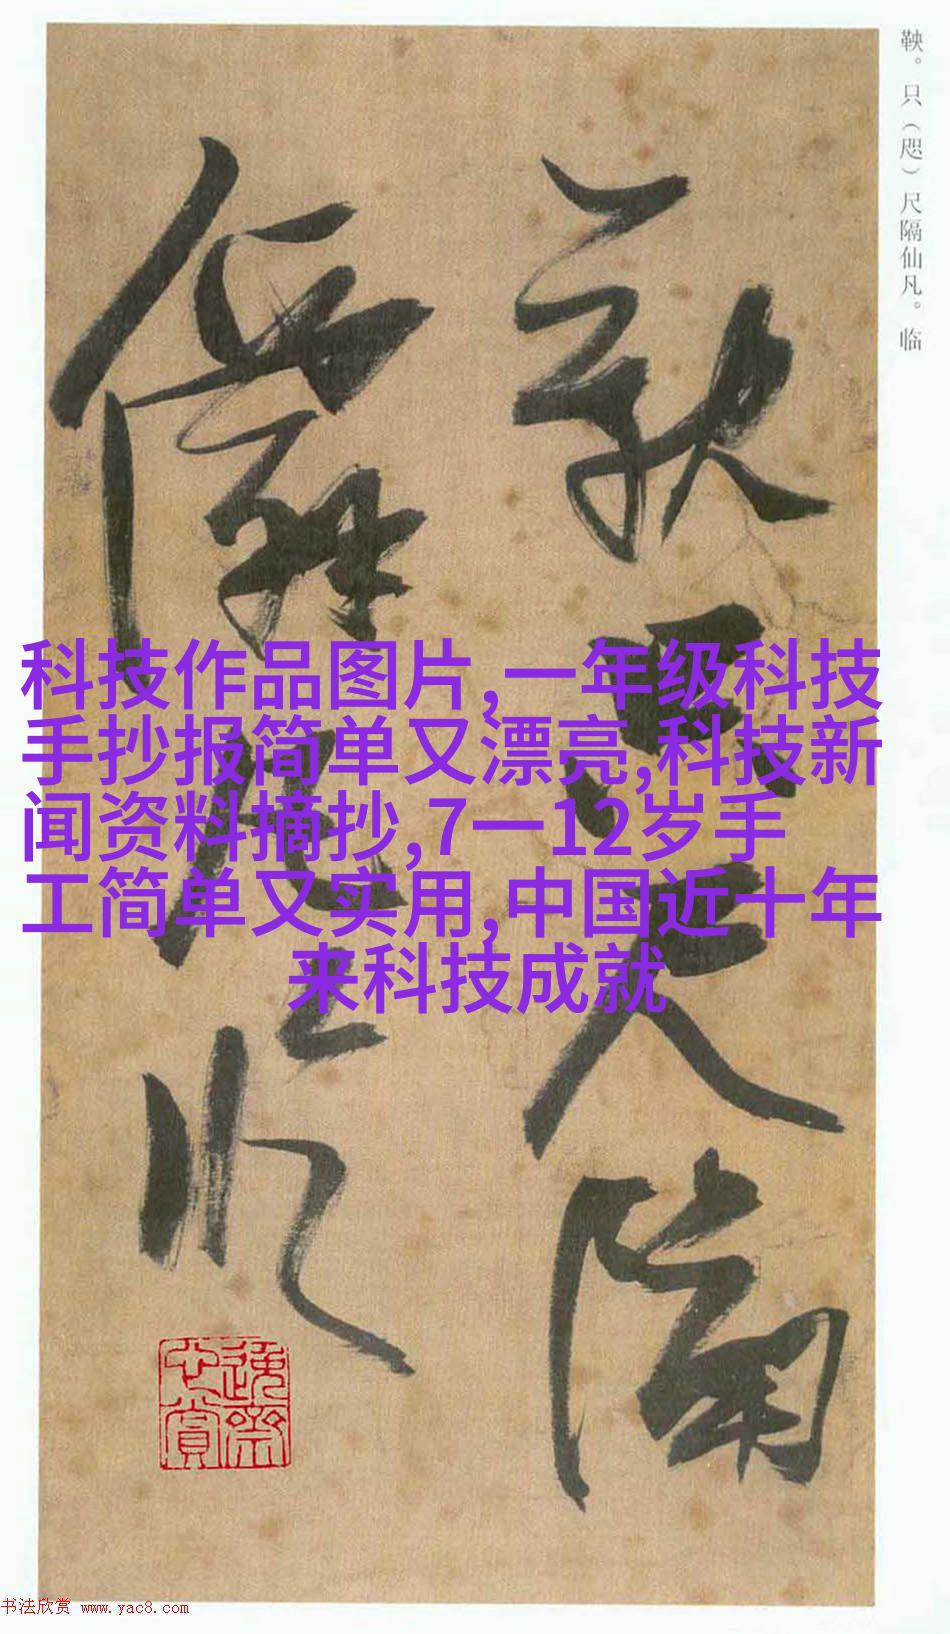 鞅。只（咫）尺隔仙凡。临
科技作品图片,一年级科技
手抄报简单又漂亮,科技新
闻资料摘抄,7一12岁手
工简单又实用,中国近十年
来科技成就
尺
隔
僊
凡
临
书法欣赏 www.yac8.com